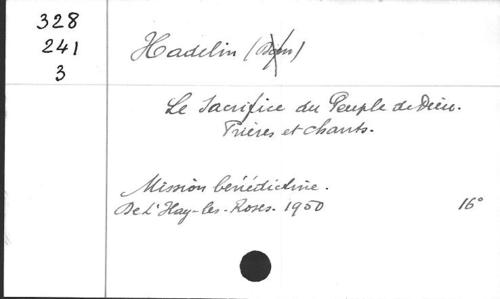 328
241
3
Hadelin (Dom)
Le Sacrifice du Peuple de Dieu.
Prières et chants.
Mission bénédictine.
De L'Hay-les-Roses. 1950
16°